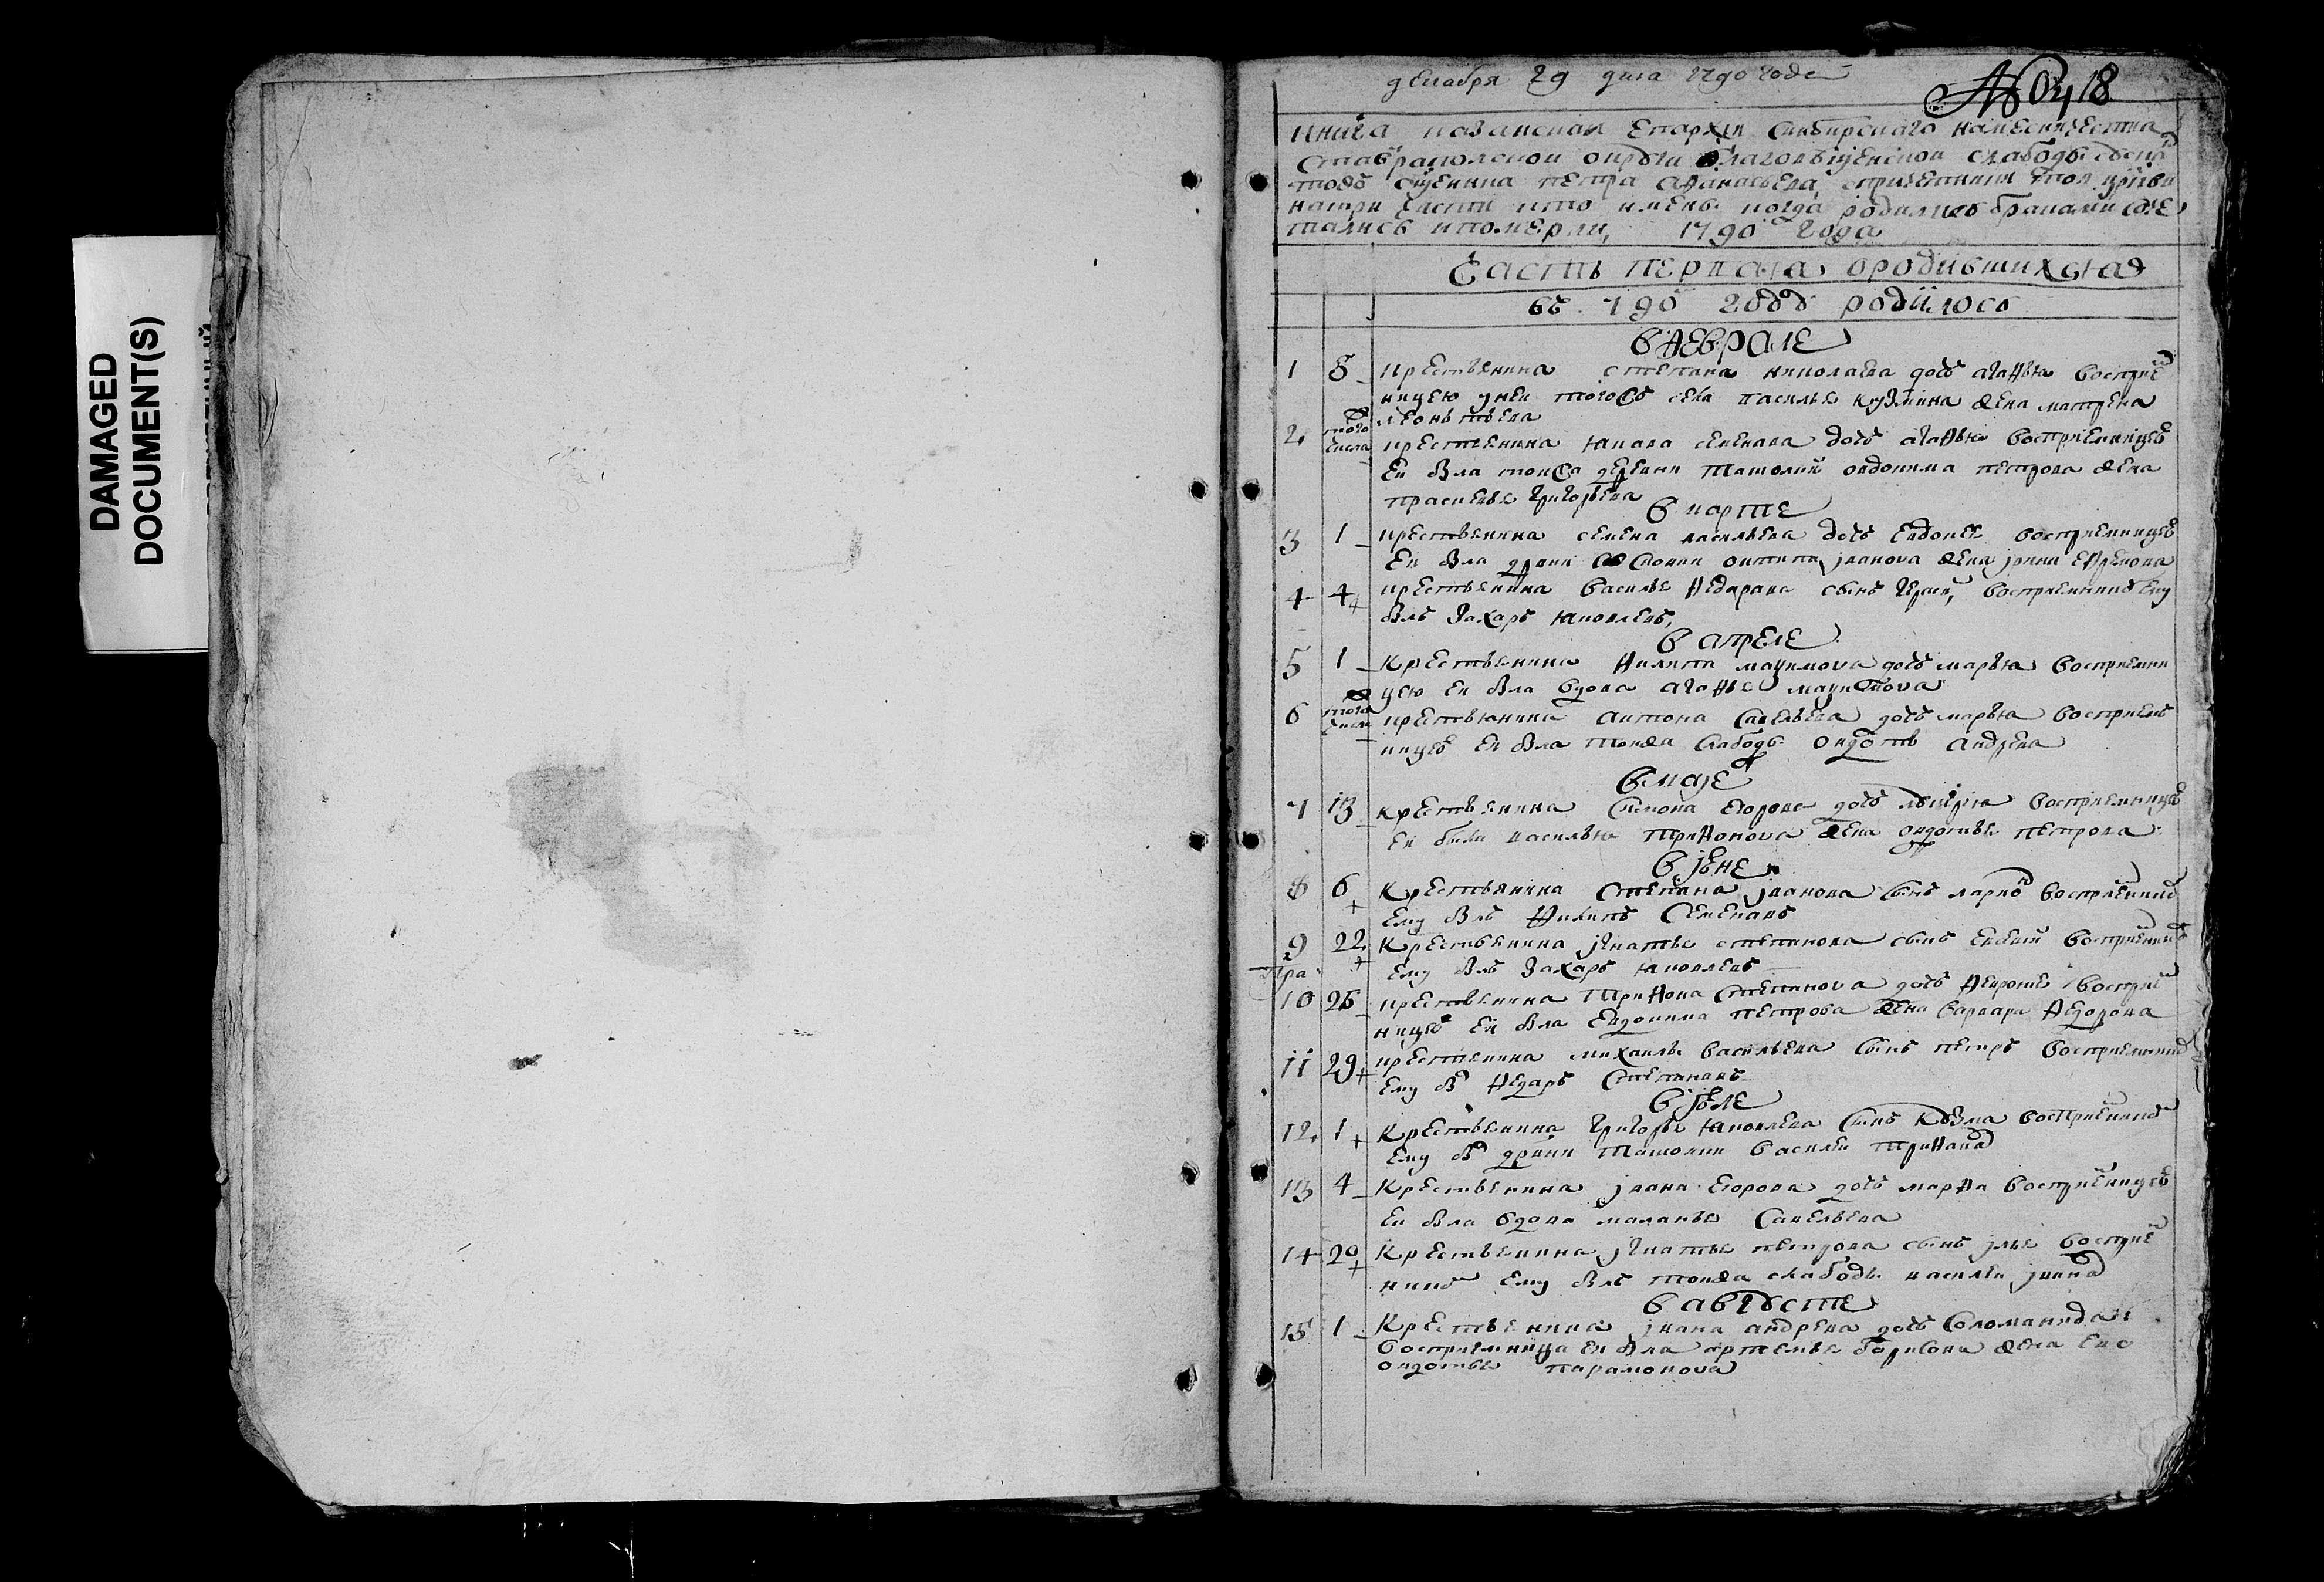 DAMAGED
DOCUMENT(S)
декабря 29 дня 1790 года
18
книга казанской Епархіи Синбирскаго намесничества
ставрапольской округи благовещенской слабоды
Петра Афанасьева спричетники той церкви
натри части кто имены когда родились браками соче
тались ипомерли, 1790 года
Часть первая ородившихсяя
въ 790 годѣ родилось
в феврале
1 8 крестьянина степана николаева дочь агафья воспрie
ницею унеи тогожъ села василья кузмина жена матрена
леонтьева
2 того числа крестьянина якова семенова дочь агафья восприемницею
Еи была деревни Ташолки овдокима петрова жена
прасковья григорьева
в марте
3 1 крестьянина семена васильева дочь Евдокея восприемницею
Еи была антипа iванова жена iрина Ефремова
4 4 крестьянина василья федорава сынъ восприемникъ Ему
былъ Захаръ яковлевъ,
в апреле
5 1 крестьянина филипа макимова дочь марья восприемни
цею Еи была вдова агафья макимова
6 того числа крестьянина антона савельева дочь марья восприемъ
ницею Еи была тоижа слабоды овдотья андрева
в маiе
7 13 крестьянина симона Егорова дочь восприемницею
Еи была василья трифонова жена овдотья петрова
в iюне
8 6 крестьянина степана iванова сынъ восприемникъ
Ему былъ филипъ семеновъ
9 22 крестьянина iгнатья степанова сынъ Евсей восприемникъ
Ему былъ Захаръ яковлевъ
10 25 крестьянина трифона степанова дочь февронья воспрie
ницею Еи была Евдокима петрова жена варвара федорова
11 29 крестьянина михаила васильева сынъ петръ восприемникъ
Ему был федаръ степановъ
в iюле
12 1 крестьянина григорья яковлева сынъ козма восприемникъ
Ему был дрвни ташолки василеи трифонав
13 4 крестьянина iвана Егорова дочь марфа восприемницею
Еи была вдова маланья савельева
14 20 крестьянина iгнатья петрова сынъ iлья воспрie
никъ Ему былъ тоижа слабоды василеи iванав
в августе
15 1 крестьянина iвана андрева дочь соломанида
восприемница Еи была артемья борисова жена Ево
овдотья парамонова